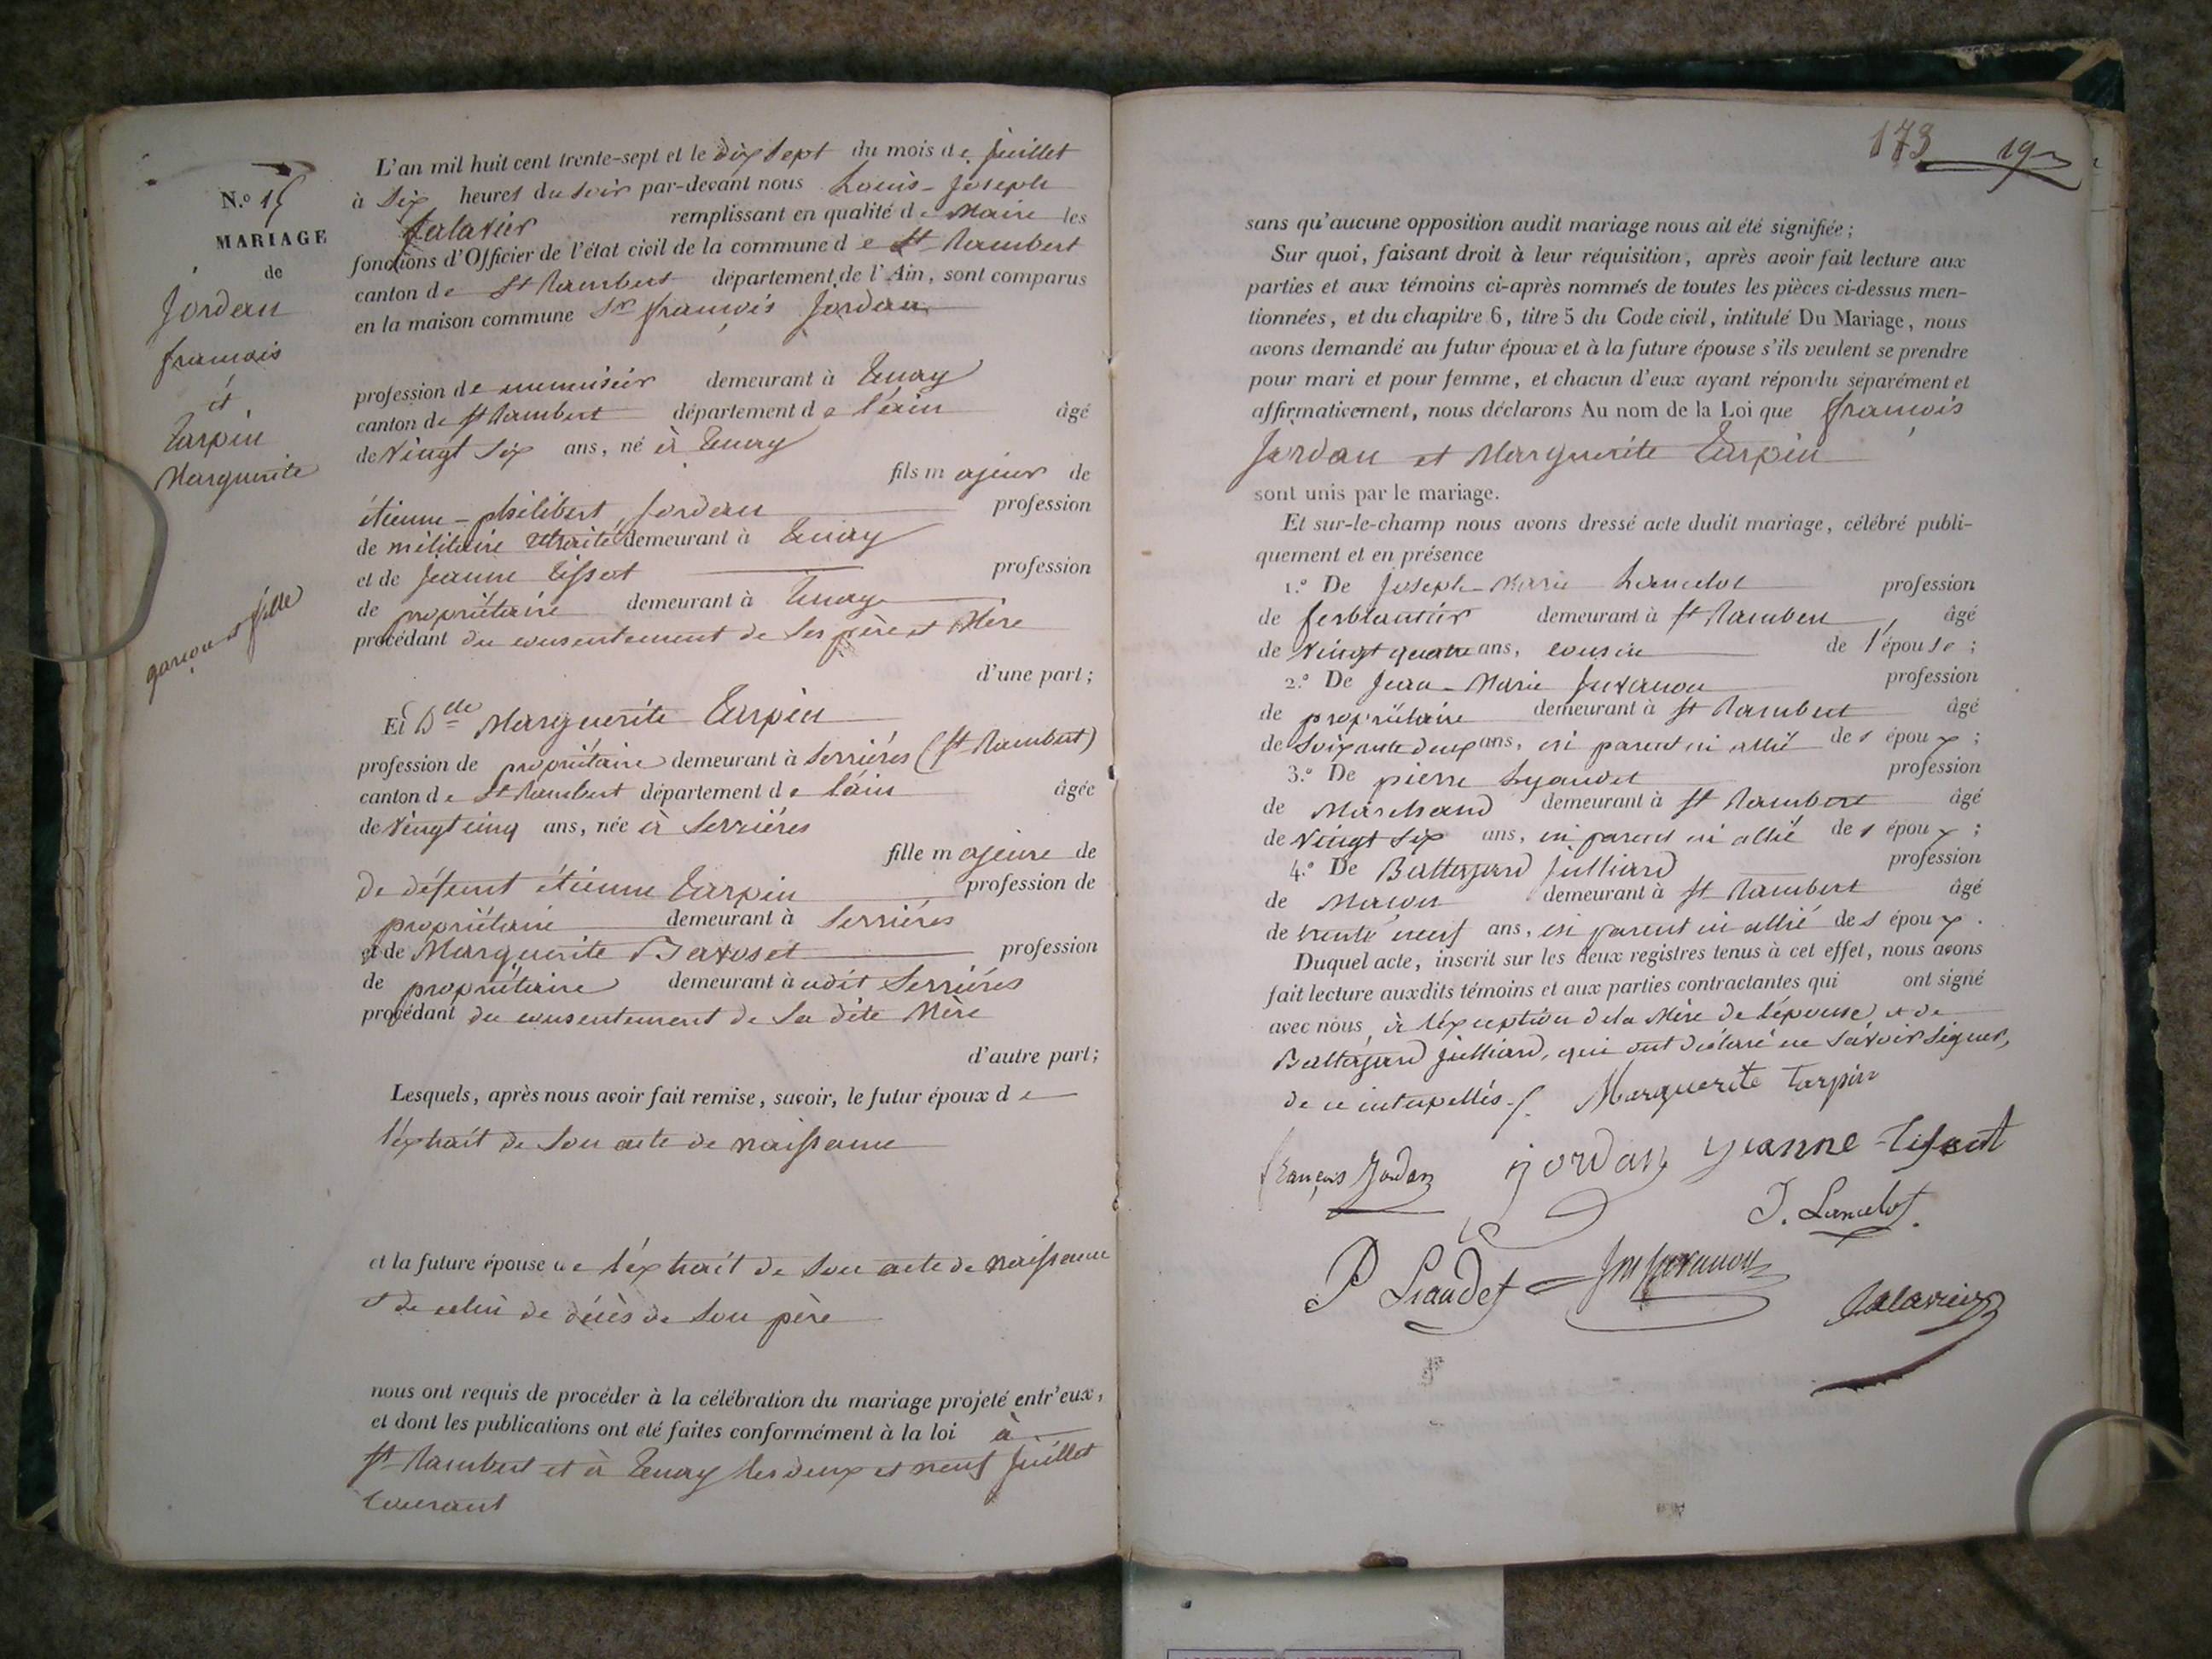 N.º 15
MARIAGE
de
Jordan
françois
et
Tarpin
Marguerite
garçon et fille
L'an mil huit cent trente-sept et le dix sept du mois de Juillet
à Six heures du soir par-devant nous Louis-Joseph
falavier remplissant en qualité de Maire les
fonctions d'Officier de l'état civil de la commune de St Rambert
canton de St Rambert département de l'Ain, sont comparus
en la maison commune Sr françois Jordan
profession de menuisier demeurant à Tenay
canton de St Rambert département de l'ain âgé
de Vingt Six ans, né à Tenay
fils majeur de
étienne-philibert Jordan profession
de militaire retraité demeurant à Tenay
et de Jeanne Tissot profession
de propriétaire demeurant à Tenay
procédant du consentement de Ses père et Mère
d'une part;
Et Dlle Marguerite Tarpin
profession de propriétaire demeurant à Serrières (St Rambert)
canton de St Rambert département de l'ain âgée
de Vingt cinq ans, née à Serrières
fille majeure de
de défunt étienne Tarpin profession de
propriétaire demeurant à Serrières
et de Marguerite Bavoset profession
de propriétaire demeurant à udit Serrières
procédant du consentement de Sa dite Mère
d'autre part;
Lesquels, après nous avoir fait remise, savoir, le futur époux de
l'éxtrait de Son acte de naissance
et la future épouse de l'éxtrait de Son acte de naissance
et de celui de décès de Son père
nous ont requis de procéder à la célébration du mariage projeté entr'eux,
et dont les publications ont été faites conformément à la loi à
St Rambert et à Tenay les deux et neuf Juillet
Courant
173 19
sans qu'aucune opposition audit mariage nous ait été signifiée;
Sur quoi, faisant droit à leur réquisition, après avoir fait lecture aux
parties et aux témoins ci-après nommés de toutes les pièces ci-dessus men-
tionnées, et du chapitre 6, titre 5 du Code civil, intitulé Du Mariage, nous
avons demandé au futur époux et à la future épouse s'ils veulent se prendre
pour mari et pour femme, et chacun d'eux ayant répondu séparément et
affirmativement, nous déclarons Au nom de la Loi que françois
Jordan et Marguerite Tarpin
sont unis par le mariage.
Et sur-le-champ nous avons dressé acte dudit mariage, célébré publi-
quement et en présence
1.º De Joseph-Marie Lancelot profession
de ferblantier demeurant à St Rambert, âgé
de Vingt quatre ans, cousin de l'épouse;
2.º De Jean-Marie Juvanon profession
de propriétaire demeurant à St Rambert âgé
de Soixante deux ans, ni parent ni allié des époux;
3.º De pierre Lyaudet profession
de Marchand demeurant à St Rambert âgé
de Vingt Six ans, ni parent ni allié des époux;
4.º De Baltazard Julliard profession
de Maçon demeurant à St Rambert âgé
de trente neuf ans, ni parent ni allié des époux.
Duquel acte, inscrit sur les deux registres tenus à cet effet, nous avons
fait lecture auxdits témoins et aux parties contractantes qui ont signé
avec nous, à l'éxception de la Mère de l'épouse, et de
Baltazard Julliard, qui ont déclaré ne Savoir Signer,
de ce interpellés. Marguerite tarpin
françois Jordan jordan jeanne tissot
J. Lancelot
P Liaudet Jm Juvanon
falavier